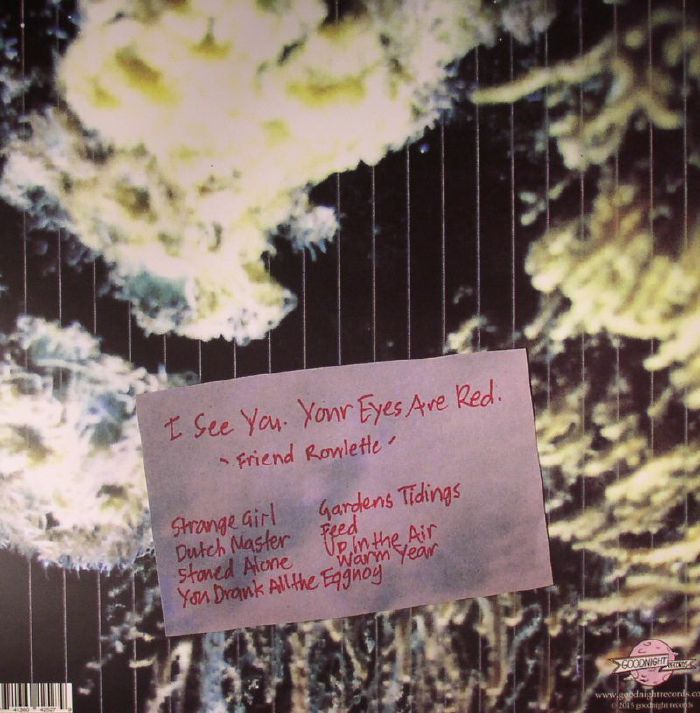 I See You. Your Eyes Are Red.
~ Friend Rowlette ~
Strange Girl
Dutch Master
Stoned Alone
You Drank All the Eggnog
Gardens Tidings
Feed
Up In the Air
Warm Year
GOODNIGHT RECORDS
www.goodnightrecords.co
© 2015 goodnight records